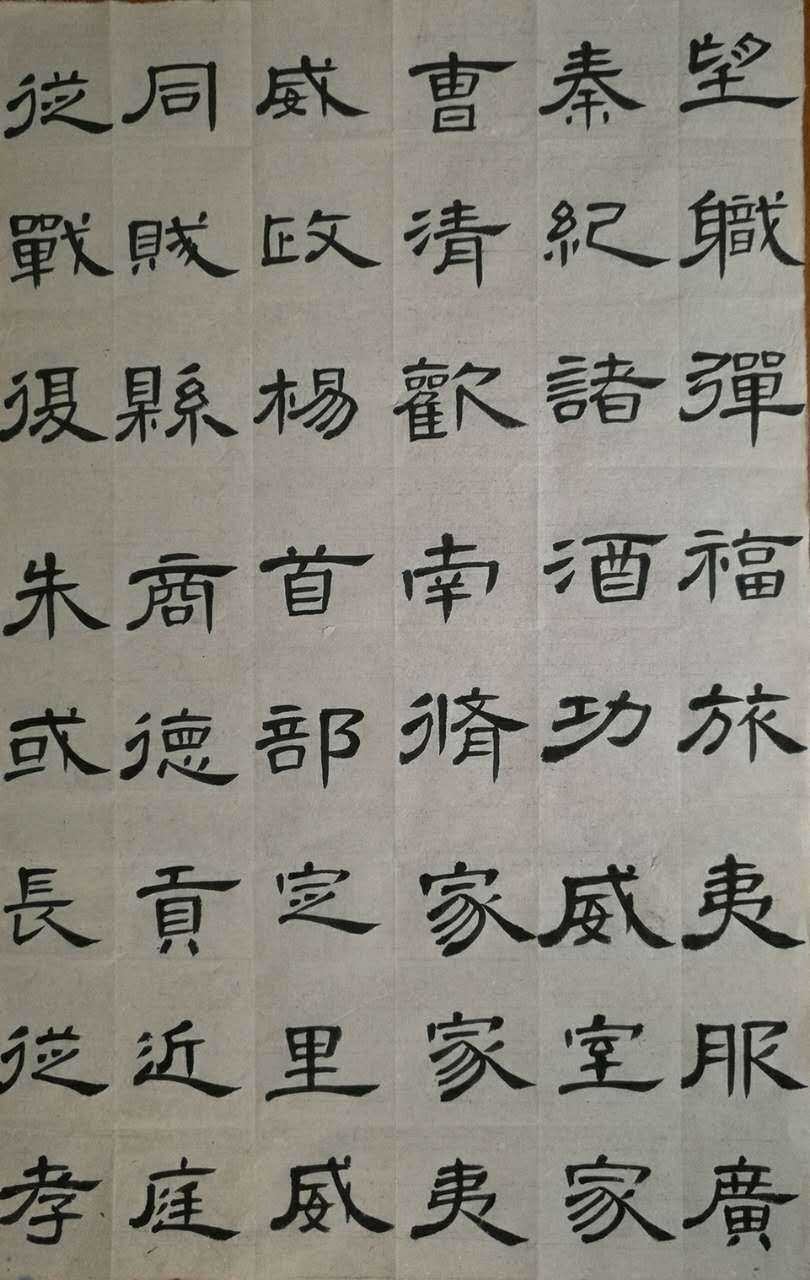 望職彈福旅夷服廣
秦紀諸酒功威室家
曹清歡南脩家家夷
威政楊首部定里威
同賊縣商德貢近庭
從戰復朱或長從孝